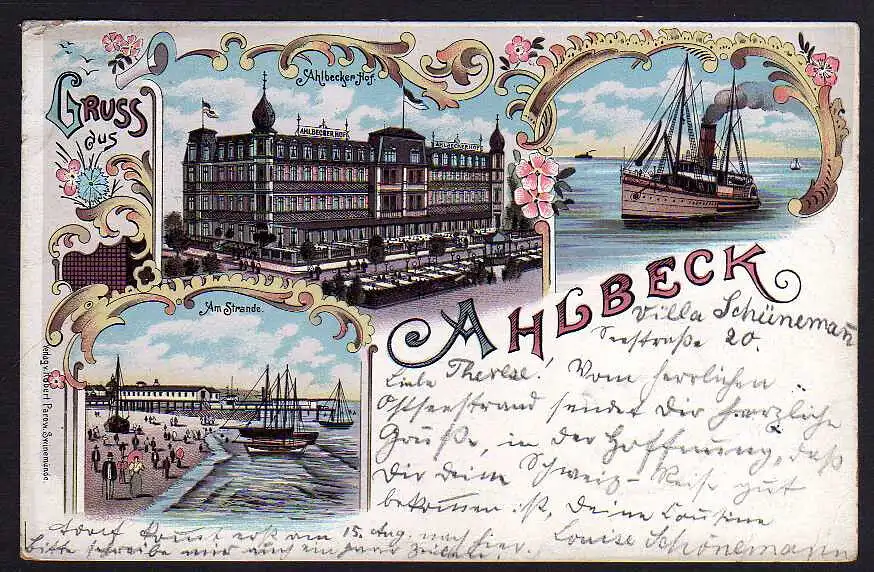 Gruss
aus
Ahlbecker Hof.
AHLBECKER HOF
AHLBECKER HOF
Am Strande.
AHLBECK
Verlag v. Robert Parow, Swinemünde.
Villa Schünemann
Seestraße 20.
Liebe Therese! Vom herrlichen
Ostseestrand sendet Dir herzliche
Grüße, in der Hoffnung, daß
Dir deine Schweiz-Reise gut
bekommen ist, Deine Cousine
Louise Schönemann
Adolf kommt erst am 15. Aug. nach hier.
Bitte schreibe mir auch ein paar Zeilen.